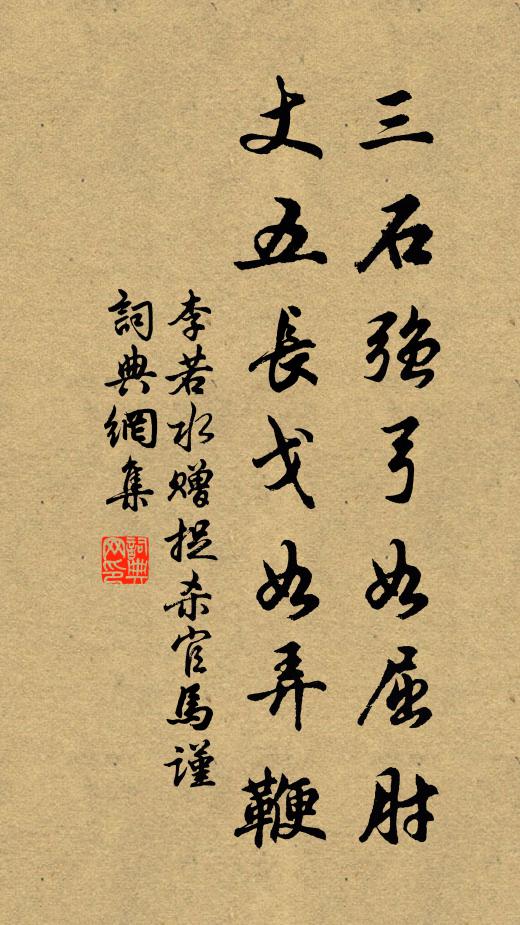 三石強弓如屈肘
丈五長戈如弄鞭
李若水赠捉杀官馬謹
詞典網集
詞典网印